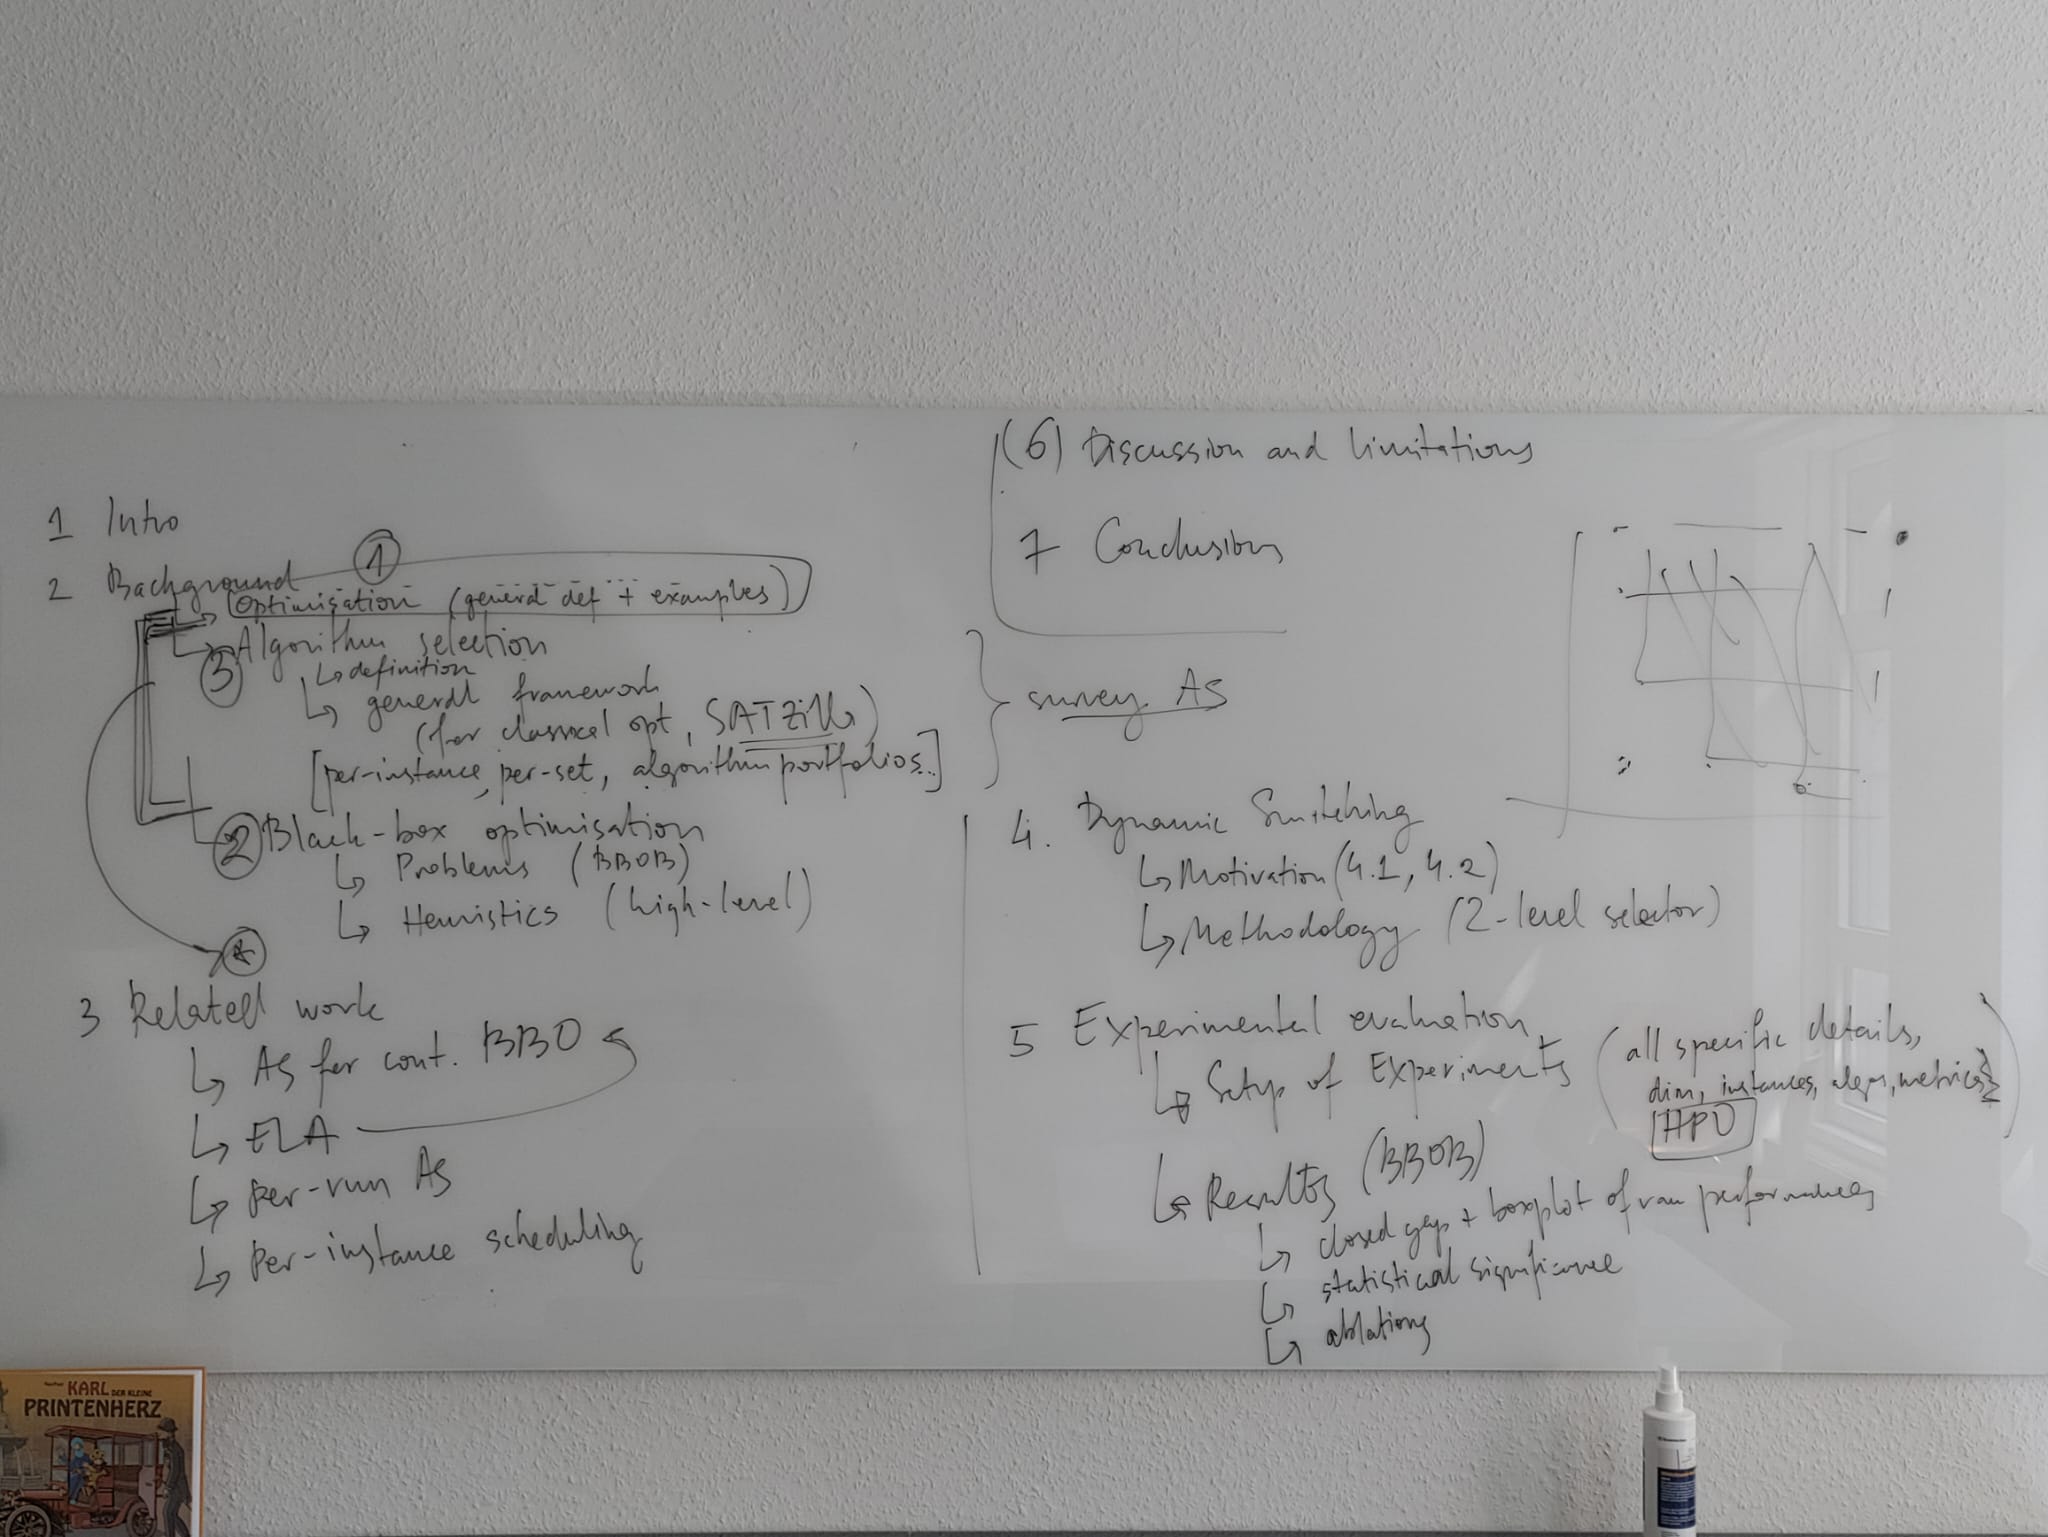 1 Intro
2 Background
1
Optimisation (general def + examples)
3 Algorithm selection
↳ definition
↳ general framework
(for classical opt, SATzilla)
[per-instance, per-set, algorithm portfolios..]
} survey AS
2 Black-box optimisation
↳ Problems (BBOB)
↳ Heuristics (high-level)
3 Related work
↳ AS for cont. BBO
↳ ELA
↳ per-run AS
↳ Per-instance scheduling
(6) Discussion and limitations
7 Conclusions
4. Dynamic Switching
↳ Motivation (4.1, 4.2)
↳ Methodology (2-level selector)
5 Experimental evaluation
↳ Setup of Experiments (all specific details,
dim, instances, algos, metrics)
HPO
↳ Results (BBOB)
↳ closed gap + boxplot of raw performances
↳ statistical significance
↳ ablations
KARL DER KLEINE
PRINTENHERZ